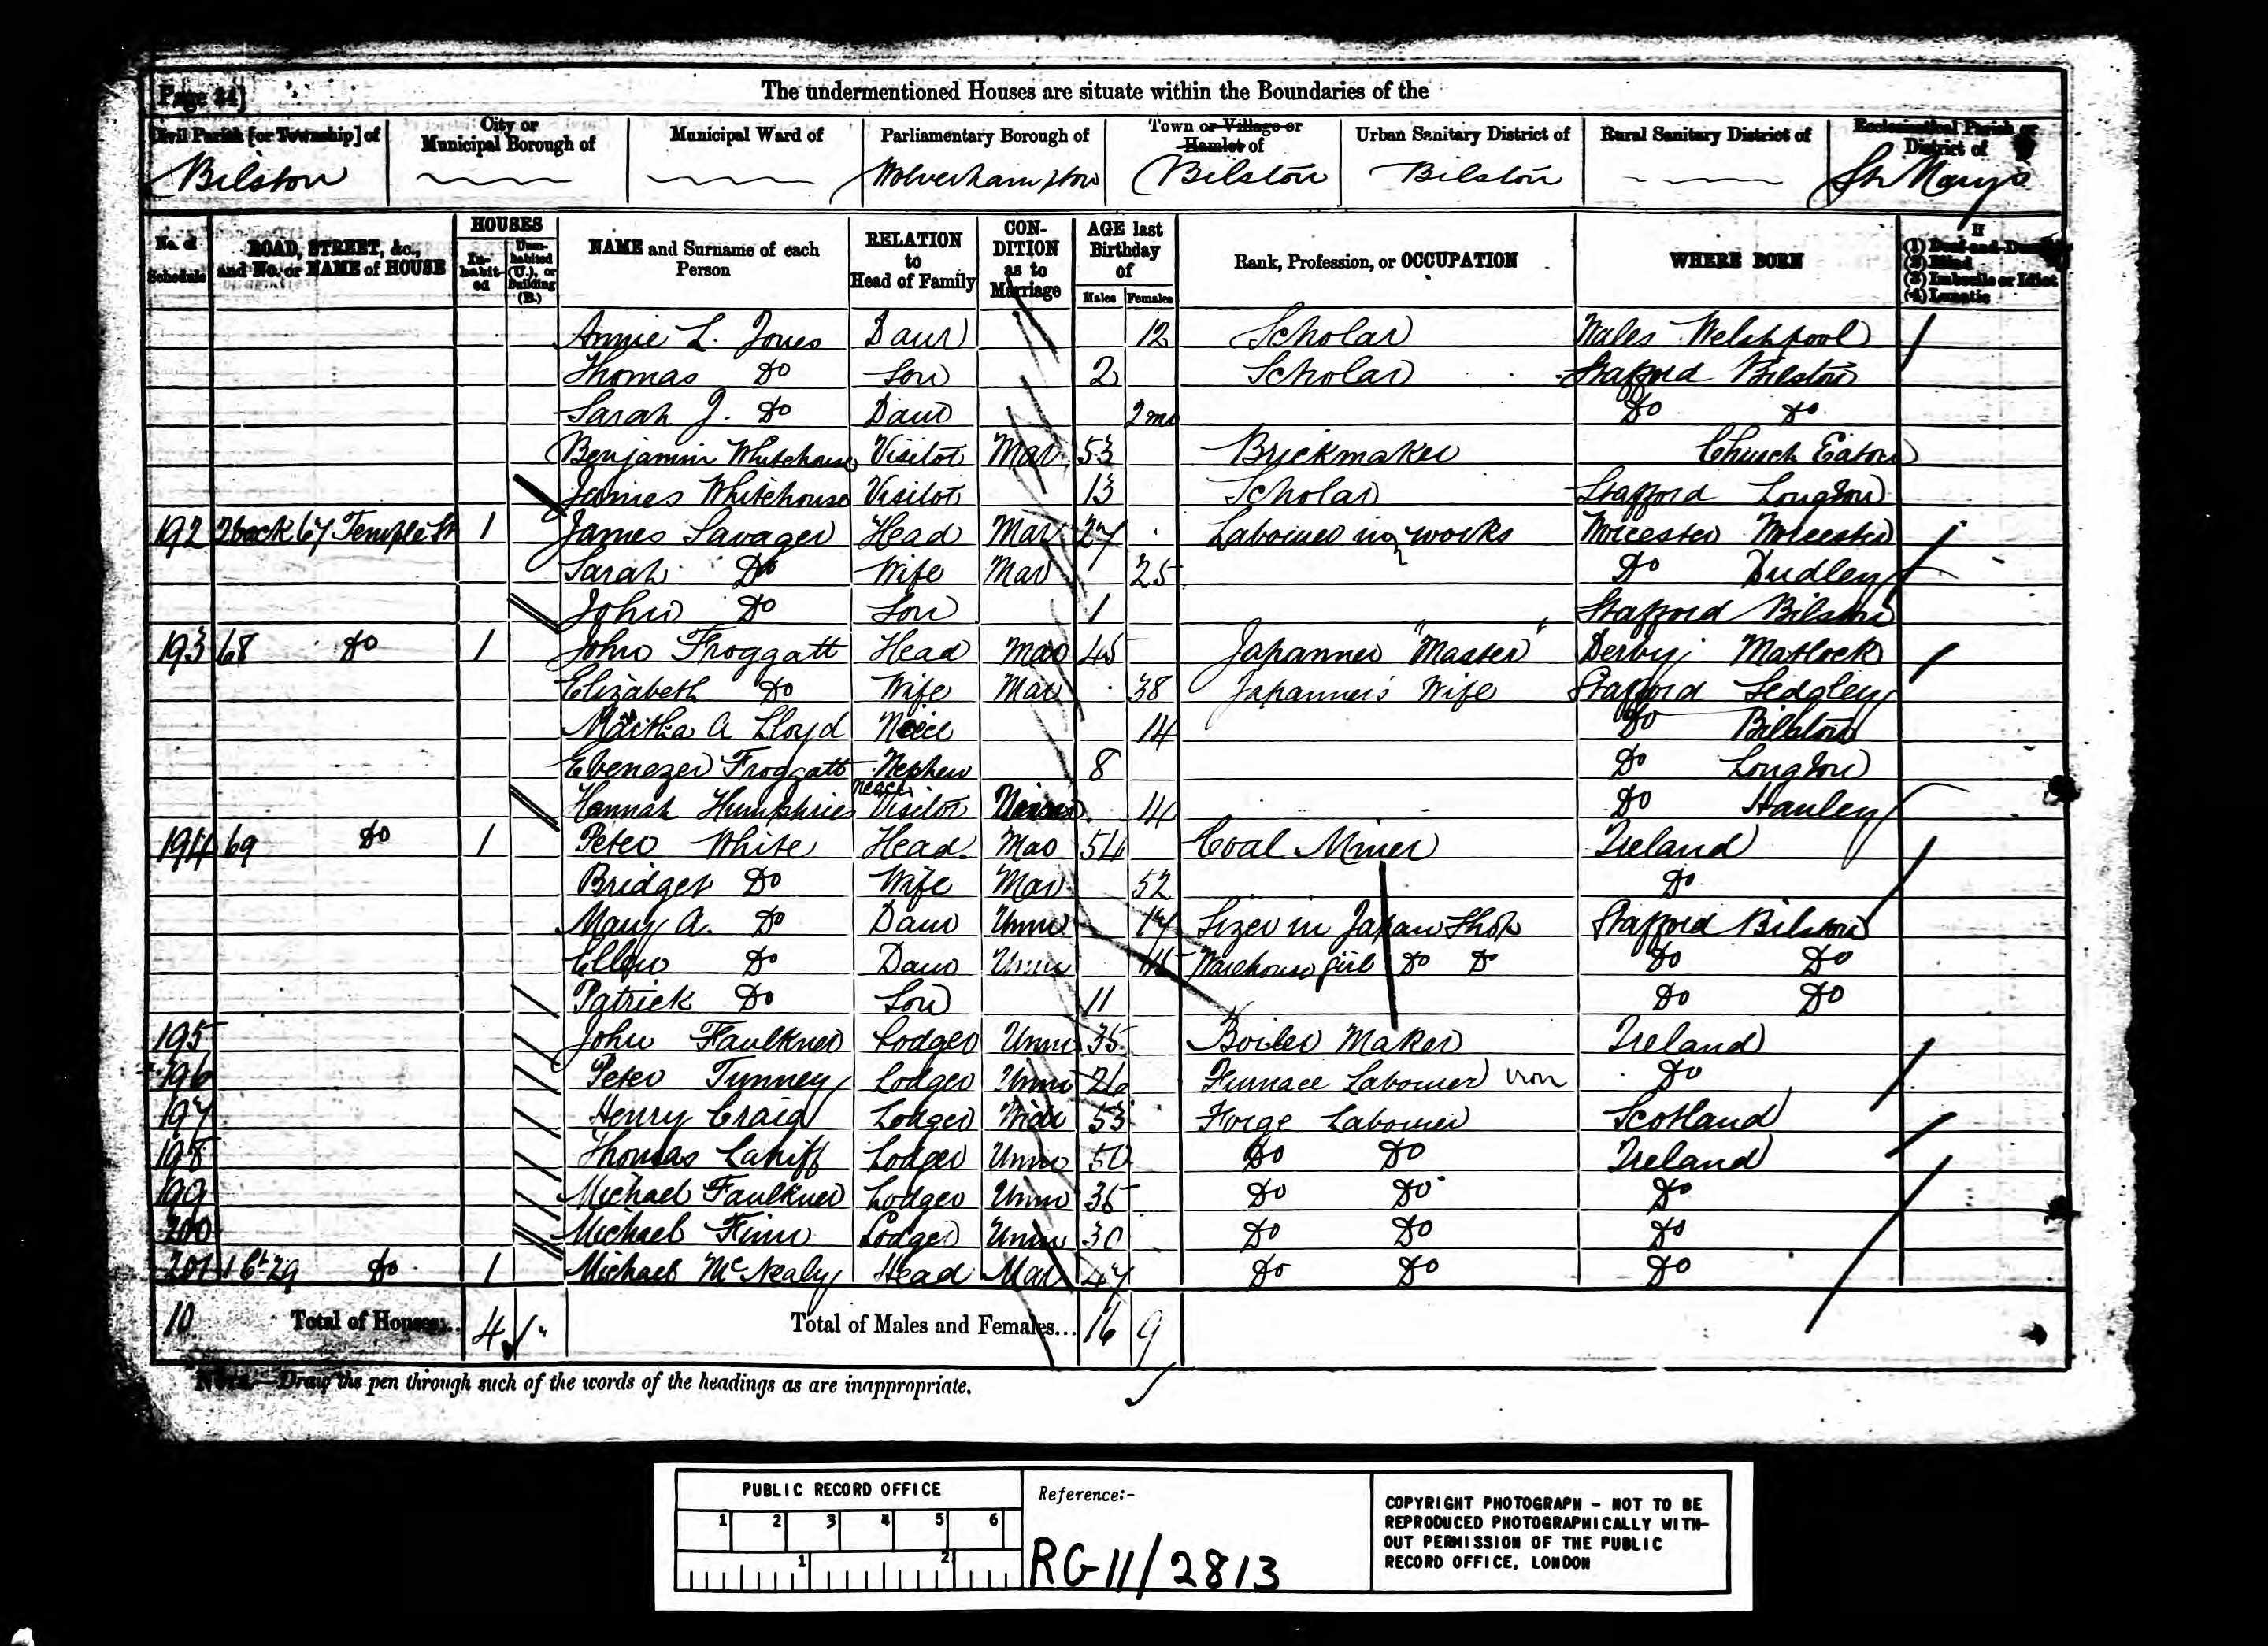 Page 34]
The undermentioned Houses are situate within the Boundaries of the
Civil Parish [or Township] of City or Municipal Borough of Municipal Ward of Parliamentary Borough of Town or Village or Hamlet of Urban Sanitary District of Rural Sanitary District of Ecclesiastical Parish or District of
Bilston Wolverhampton Bilston Bilston St Mary's
No. of Schedule ROAD, STREET, &c., and No. or NAME of HOUSE HOUSES Inhabited Uninhabited (U.), or Building (B.) NAME and Surname of each Person RELATION to Head of Family CONDITION as to Marriage AGE last Birthday of Males Females Rank, Profession, or OCCUPATION WHERE BORN If (1) Deaf-and-Dumb (2) Blind (3) Imbecile or Idiot (4) Lunatic
Annie L. Jones Daur 12 Scholar Wales Welshpool
Thomas Do Son 2 Scholar Stafford Bilston
Sarah J. Do Daur 2 mo Do Do
Benjamin Whitehouse Visitor Mar 53 Brickmaker Church Eaton
James Whitehouse Visitor 13 Scholar Stafford Longton
192 2 back 67 Temple St 1 James Savager Head Mar 27 Labourer in works Worcester Worcester
Sarah Do Wife Mar 25 Do Dudley
John Do Son 1 Stafford Bilston
193 68 Do 1 John Froggatt Head Mar 45 Japanner "Master" Derby Matlock
Elizabeth Do Wife Mar 38 Japanner's Wife Stafford Sedgley
Martha A Lloyd Neice 14 Do Bilston
Ebenezer Froggatt Nephew 8 Do Longton
Hannah Humphries Visitor 14 Do Hanley
194 69 Do 1 Peter White Head Mar 54 Coal Miner Ireland
Bridget Do Wife Mar 52 Do
Mary A. Do Daur Unm 17 Sizer in Japan Shop Stafford Bilston
Ellen Do Daur Unm Warehouse girl Do Do Do Do
Patrick Do Son 11 Do Do
195 John Faulkner Lodger Unm 35 Boiler Maker Ireland
196 Peter Tynney Lodger Unm 26 Furnace Labourer iron Do
197 Henry Craig Lodger 53 Forge Labourer Scotland
198 Thomas Lahiff Lodger Unm 50 Do Do Ireland
199 Michael Faulkner Lodger Unm 36 Do Do Do
200 Michael Finn Lodger Unm 30 Do Do Do
201 Do 1 Michael McNealy Head Mar 47 Do Do Do
10 Total of Houses... 4 Total of Males and Females... 16 9
NOTE.—Draw the pen through such of the words of the headings as are inappropriate.
PUBLIC RECORD OFFICE
1 2 3 4 5 6
1 2
Reference:-
RG 11/2813
COPYRIGHT PHOTOGRAPH - NOT TO BE
REPRODUCED PHOTOGRAPHICALLY WITH-
OUT PERMISSION OF THE PUBLIC
RECORD OFFICE, LONDON